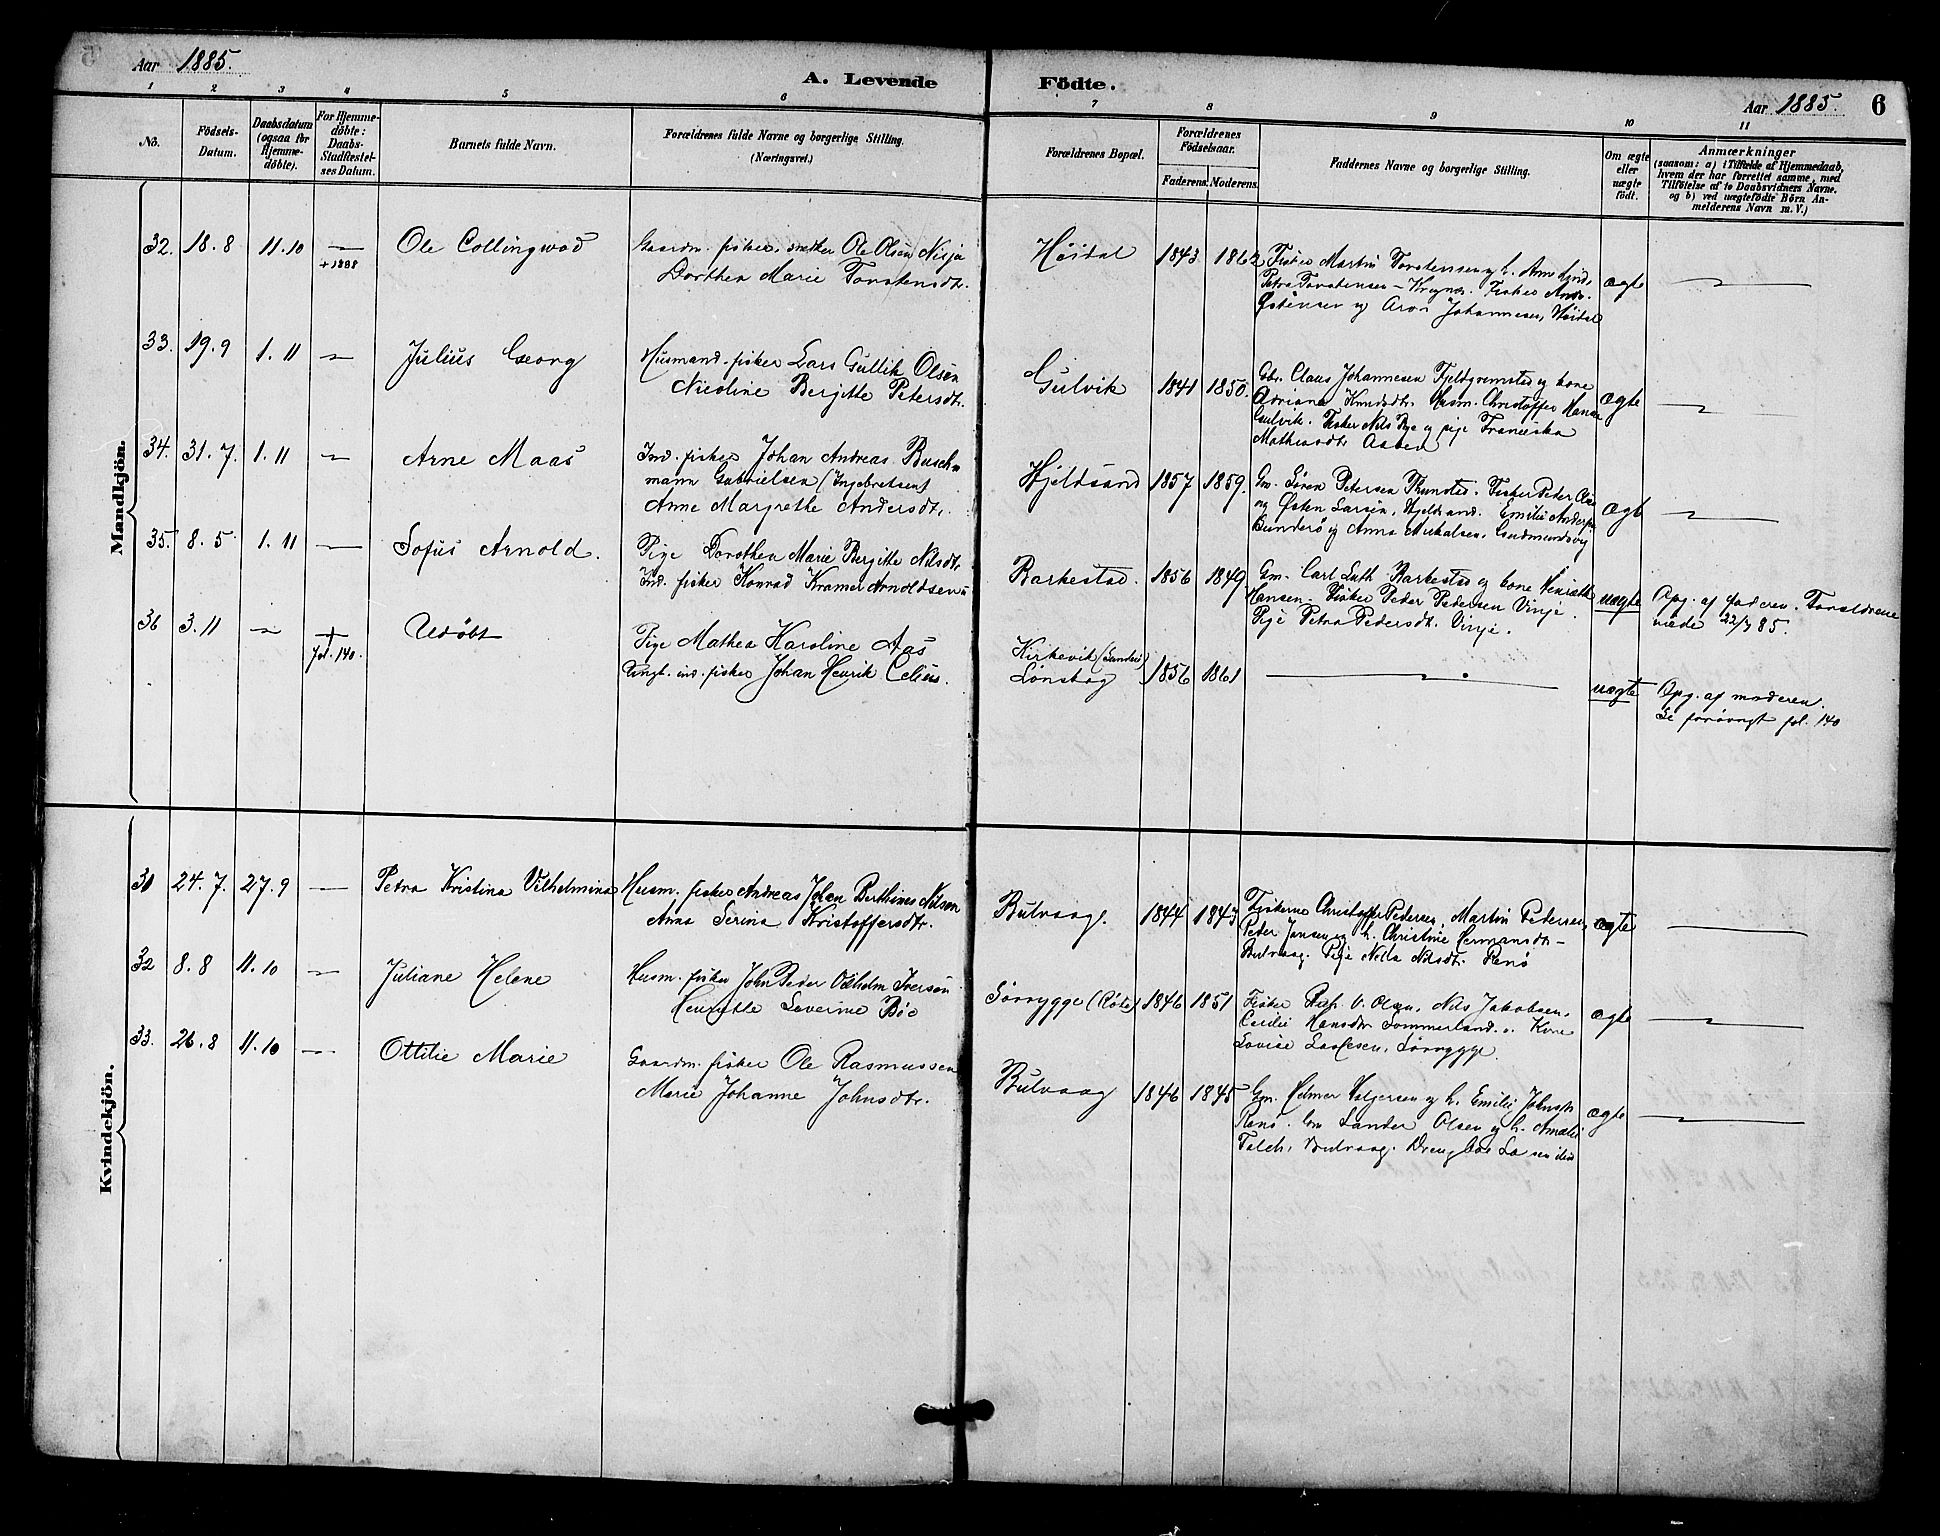 Aar 1885.
A. Levende Födte.
Aar 1885. 6
1 2 3 4 5 6 7 8 9 10 11
No.
Födsels-Datum.
Daabsdatum (ogsaa for Hjemmedöbte).
For Hjemmedöbte: Daabs-Stadfæstelses Datum.
Barnets fulde Navn.
Forældrenes fulde Navne og borgerlige Stilling.
(Næringsvei.)
Forældrenes Bopæl.
Forældrenes Födselsaar.
Faderens. Moderens.
Faddernes Navne og borgerlige Stilling.
Om ægte eller uægte födt.
Anmærkninger
(saasom: a) i Tilfælde af Hjemmedaab,
hvem der har forrettet samme, med
Tilföielse af to Daabsvidners Navne.
og b) ved uægtefödte Börn An-
melderens Navn m. V.)
Mandkjön.
32. 18.8 11.10 — +1888 Ole Collingwod
Gaardm. fisker, Ole Olsen Nisja
Dorthea Marie Torstensdtr.
Höidal 1843 1862
Fisker Martin Torstensen og h.
Petra Torstensen Fisker
Östensen og Aron Johannesen, Höidal
ægte —
33. 19.9 1.11 — Julius Georg
Husmand fisker Lars Gullik Olsen
Nicoline Bergitte Petersdtr.
Gulvik 1841 1850.
Claus Johannesen Fjeldgremstad og kone
Adriane Knudsdtr. Husm. Christoffer Hansen
Gulvik. Fisker Nils og pige Franciska
Mathiasdtr.
ægte —
34. 31.7. 1.11 — Arne Maas
Ind. fisker Johan Andreas Busch-
mann Gabrielsen (Ingebretsen)
Anne Margrethe Andersdtr.
Hjeldsand 1857 1859.
Gm. Sören Petersen Fisker Peder
og Östen Larsen, Hjeldsand. Emilie
og Anna Mikalsen,
ægte —
35. 8.5 1.11 — Sofus Arnold.
Pige Dorothea Marie Bergitte Nilsdtr.
Ind. fisker Konrad Kramer Arnoldsen
Barkestad. 1856 1849
Gm. Carl Luth Barkestad og kone
Hansen. Fisker Peder Pedersen Vinje.
Pige Petra Pedersdtr. Vinje.
uægte
Opg. af faderen. Forældrene
viede 22/7 85.
36 3.11 — + fol. 140. Udöbt
Pige Mathea Karoline Aas
Ungk. ind. fisker Johan Henrik Celius.
Kirkevik (Sandø)
Lonskog 1856 1861 —
uægte
Opg. af moderen.
Se forövrigt fol. 140
Kvindekjön.
31 24.7. 27.9 — Petra Kristina Vilhelmina
Husm. fisker Andreas Johan Berthines Nilsen
Anna Serina Kristoffersdtr.
Bulvaag. 1844 1843
Fiskerne Christoffer Pedersen, Martin Pedersen,
Peder Jansen og h. Christine Hermansdtr.
Bulvaag. Pige Nella Nilsdtr. Ranö
ægte —
32 8.8 11.10 — Juliane Helene
Husm. fisker John Peder Vilhelm Iversen
Henriette Severine Böe
Sörrygge 1846 1851
Fisker V. Olsen, Nils Jakobsen,
Hansdtr Sommerland.
Lovise Sörrygge.
ægte —
33. 26.8 11.10 — Ottilie Marie
Gaardm. fisker Ole Rasmussen
Marie Johanne Johnsdtr.
Bulvaag 1846 1845
Gm. Helmer Holgersen og h. Emilie
Ranö. Gm Sander Olsen og h. Amalie
Falch, Bulvaag.
ægte —